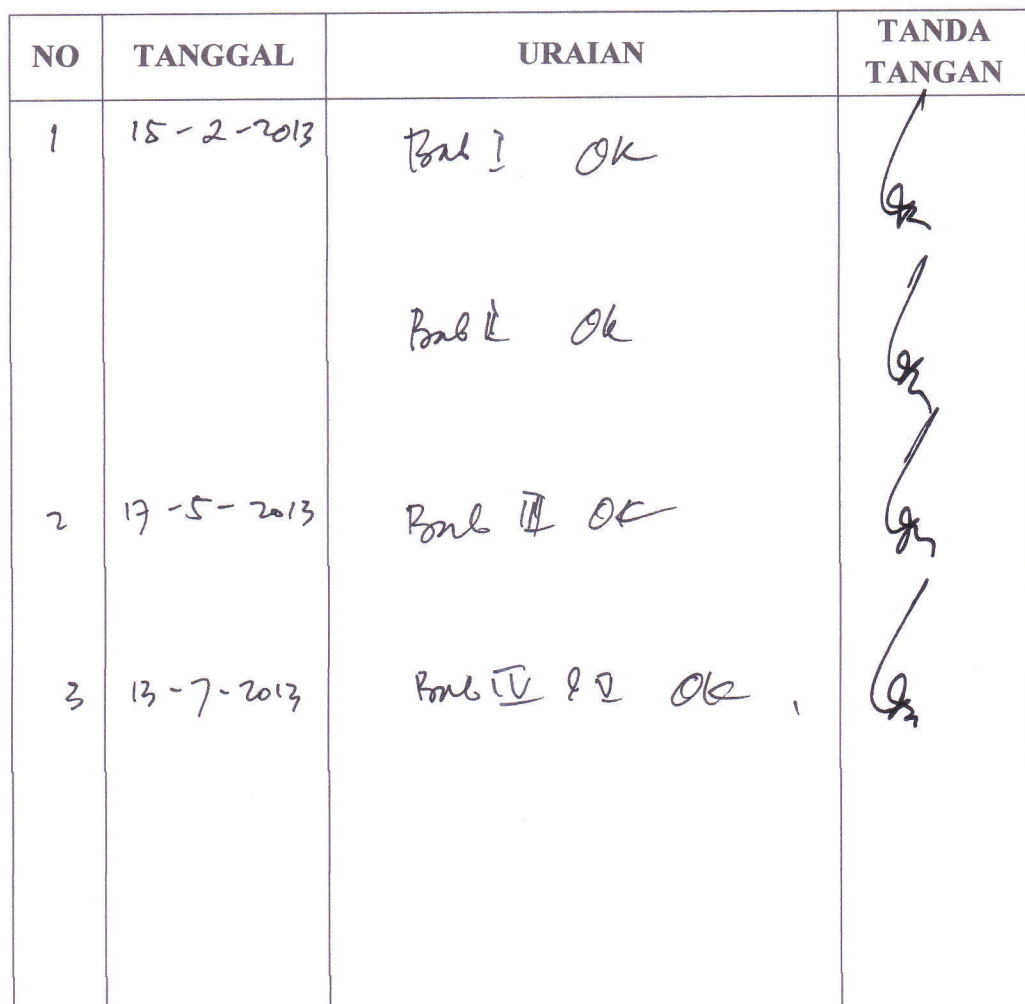 NO TANGGAL URAIAN TANDA TANGAN
1 15-2-2013 Bab I OK
Bab II Ok
2 17-5-2013 Bab III OK
3 13-7-2013 Bab IV & V Ok